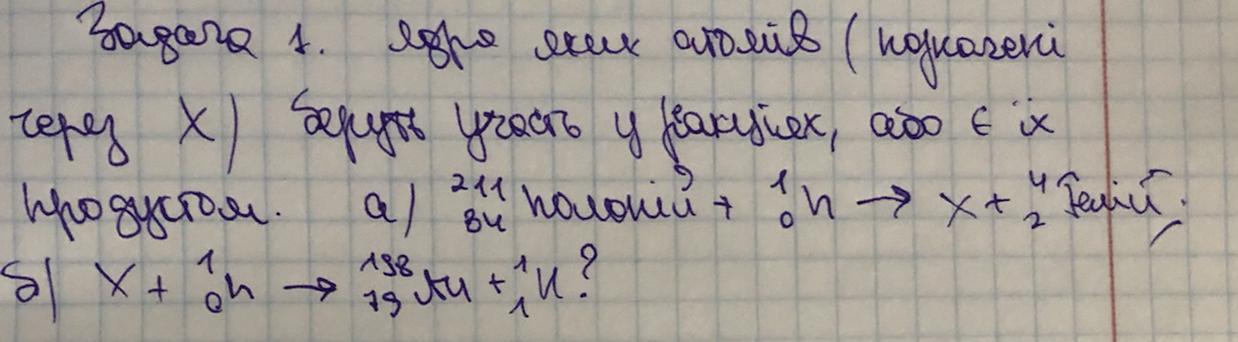 Задача 1. Ядра яких атомів (позначені
через X) беруть участь у реакціях, або є їх
продуктом. а) ²¹¹₈₄ Полоній + ¹₀n → X + ⁴₂ Гелій;
б) X + ¹₀n → ¹⁹⁸₇₉Au + ¹₁H?